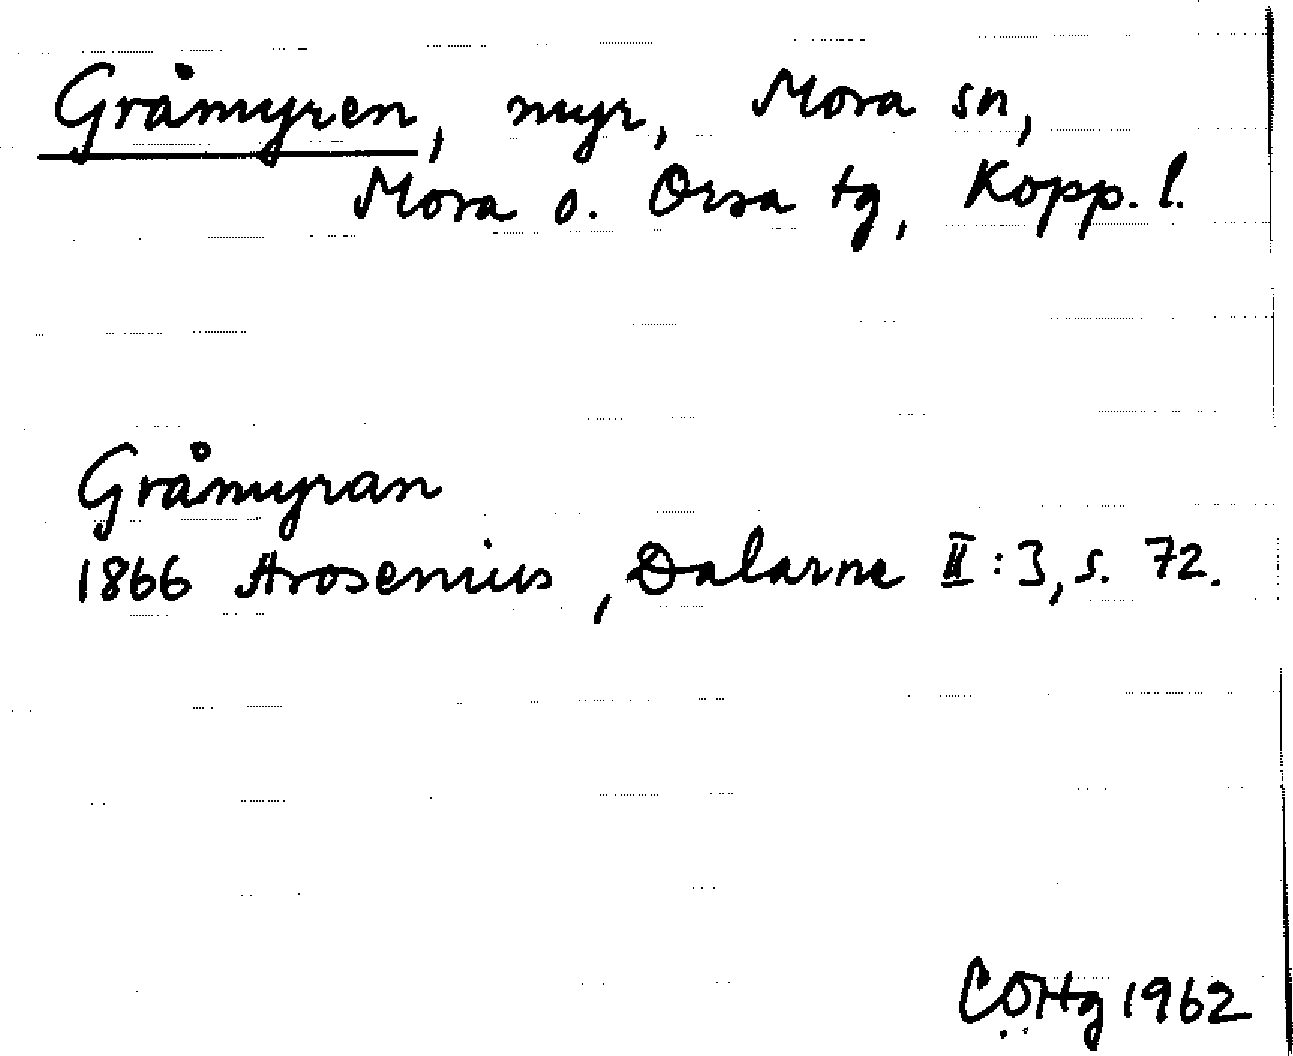 Gråmyren, myr, Mora sn,
Mora o. Orsa tg, Kopp. l.
Gråmyran
1866 Arosenius, Dalarne II:3, s. 72.
COHg 1962